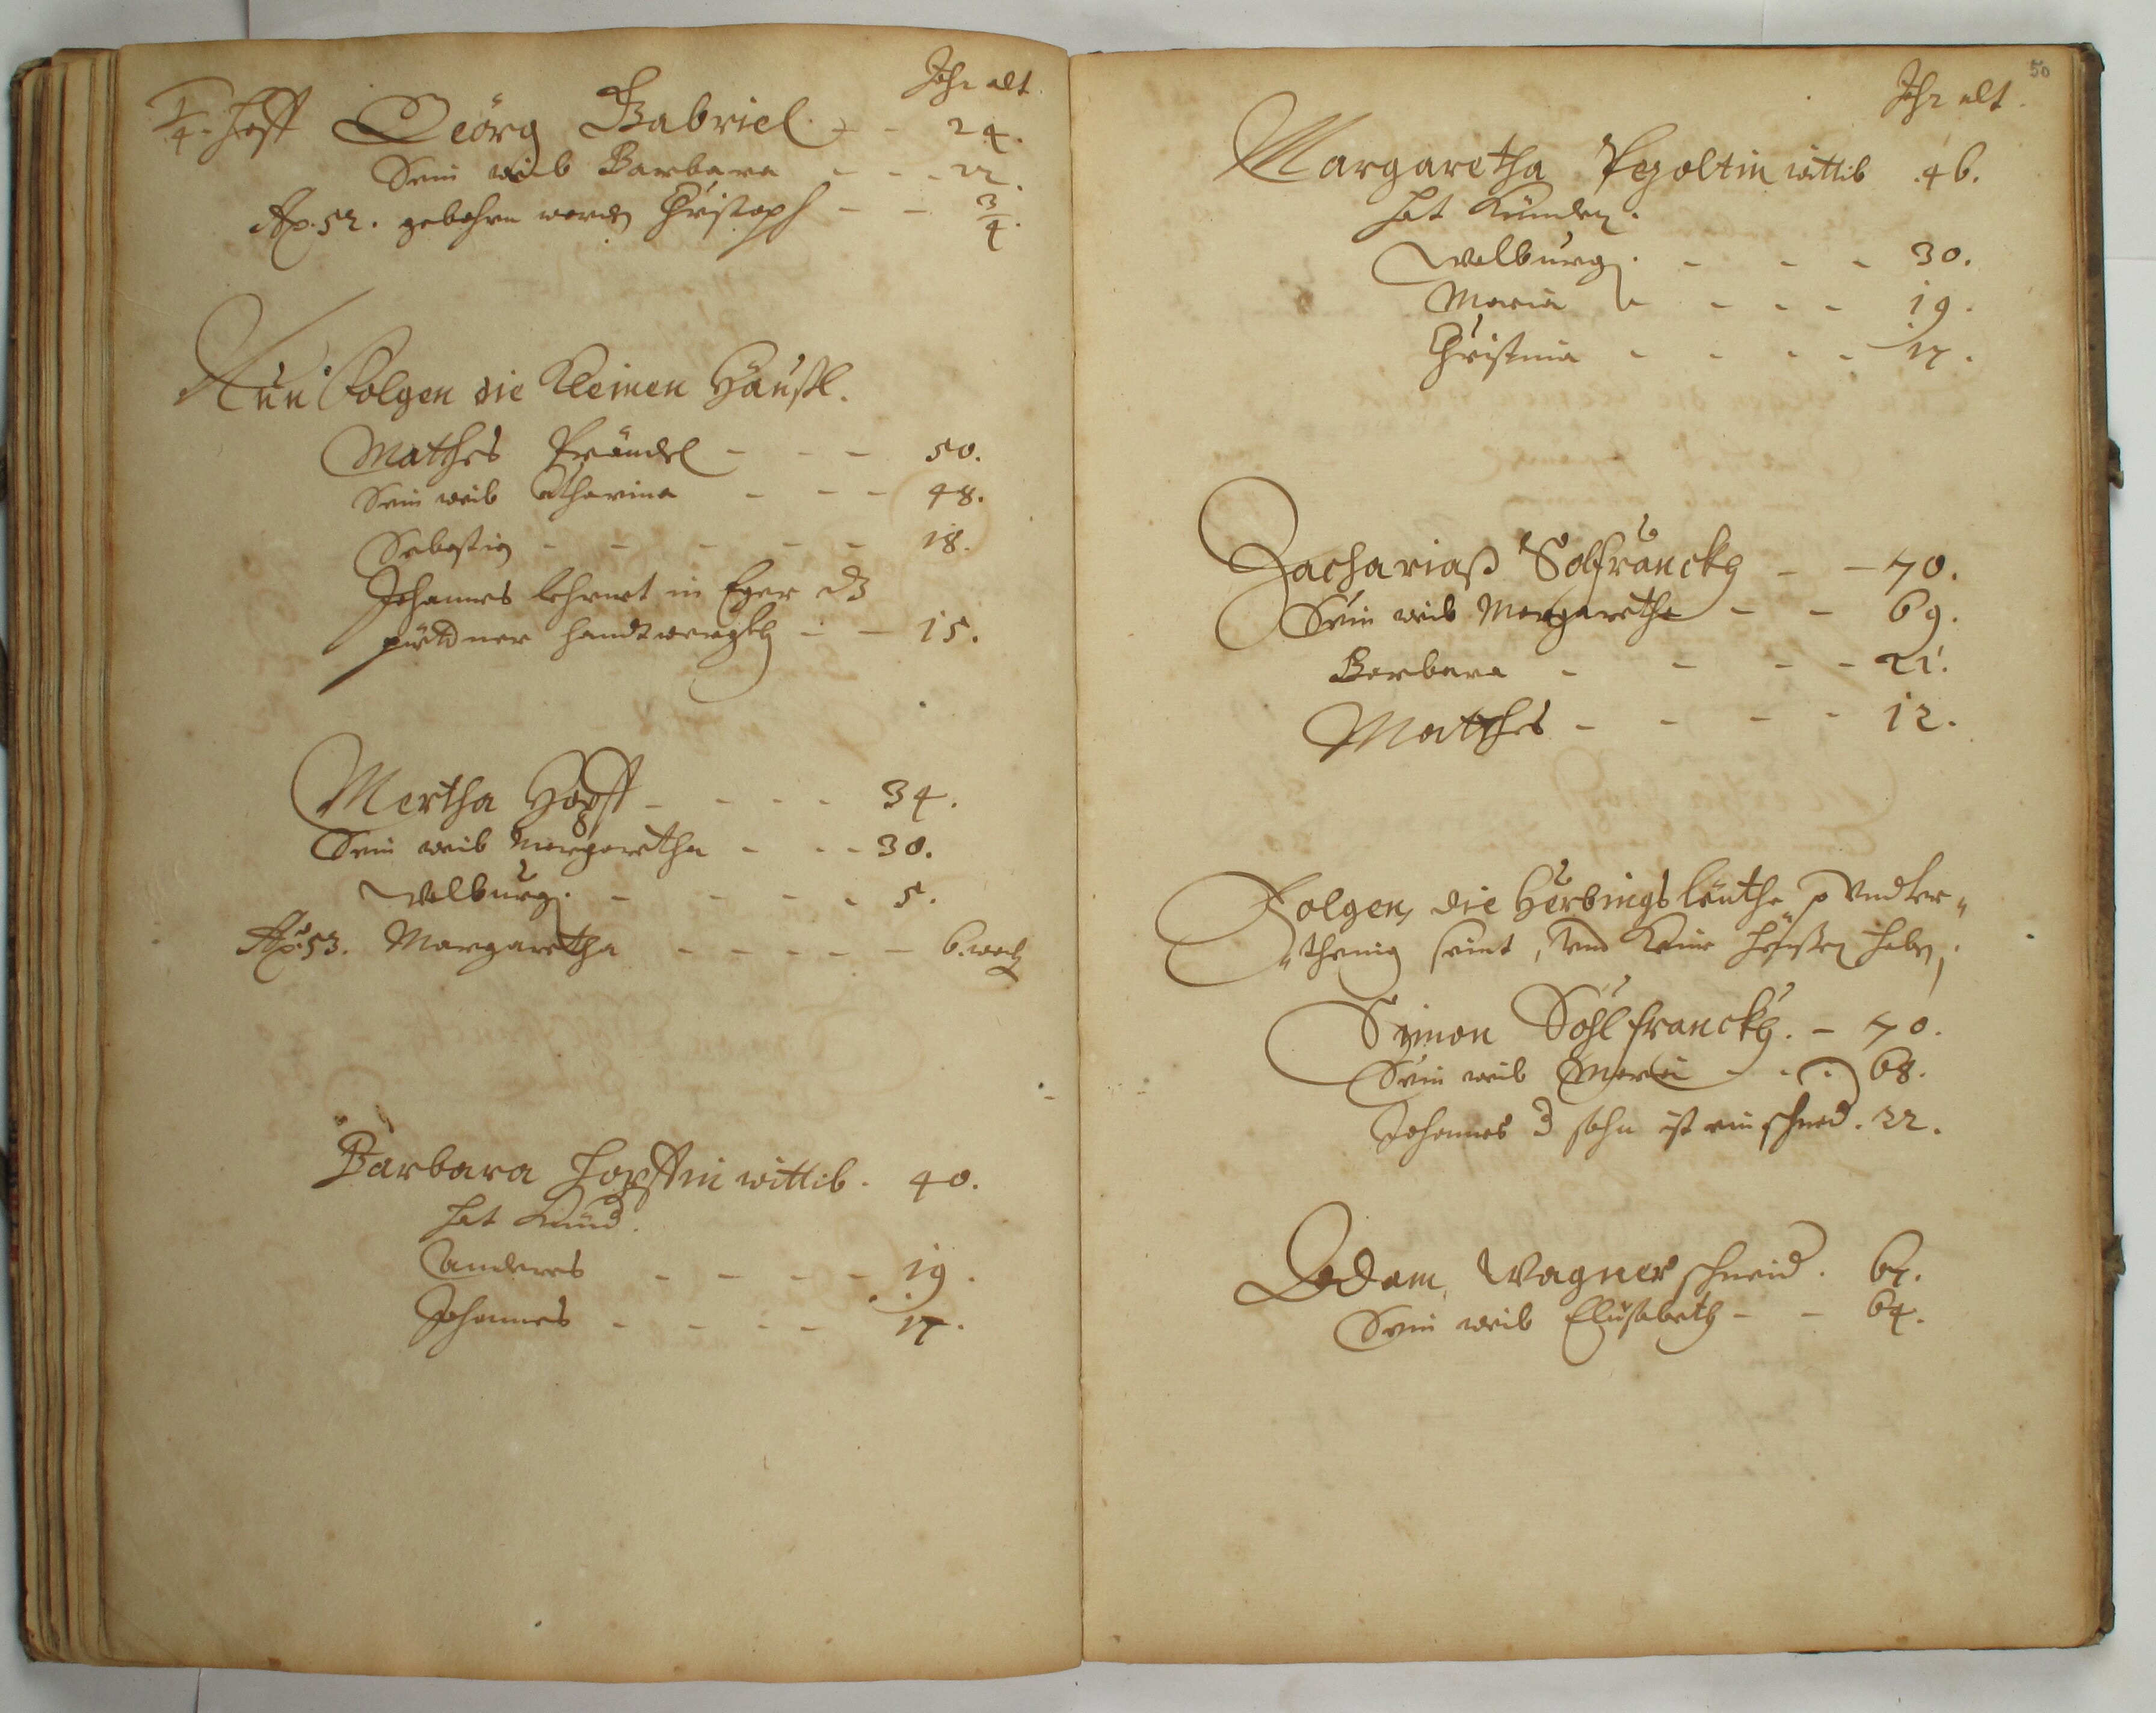 Jahr alt.
1/4. Hoff Geörg Gabriel. - - 24.
Sein weib Barbara - - - 22.
Ao. 52. gebohrn worden Christoph - - 3/4.
Nun Folgen die Kleinen Häußl.
Mathes Bräudel - - - 50.
Sein weib Catharina - - - 48.
Sebastian - - - - - 18.
Johannes lehrnet in Eger dz
püttner handtwergkh - - 15.
Mertha Hopff - - - - 34.
Sein weib Margaretha - - - 30.
Walburg. - - - - 5.
Ao. 53. Margaretha - - - - - 6. woch
Barbara Hopffin wittib. 40.
hat Kind.
Anderes - - - - 19.
Johannes - - - - 17.
50
Jahr alt.
Margaretha Pezoltin wittib 46.
hat Kinder.
Walburg. - - - 30.
Maria - - - - 19.
Christina - - - - 17.
Zachariaß Solfranckh - - 70.
Sein weib Margaretha - - 69.
Barbara - - - - 21.
Matthes - - - - 12.
Folgen, die Herbings leuthe, so Undter„
„thenig seint, Und Keine heußer haben.
Symon Sohlfranckh. - 70.
Sein weib Maria - - - 68.
Johannes d sohn ist ein schneid. 22.
Adam Wagner schneid. 67.
Sein weib Elisabeth - - 64.